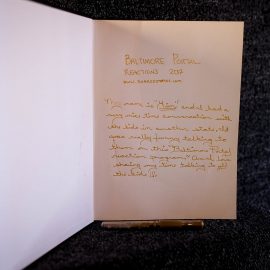 BALTIMORE PORTAL
REACTIONS 2017
My name is "Kim" and I had a
very nice time conversation with
the kids in another state. It
was really funny talking to
them on this "Baltimore Portal
reaction program". And I love
sharing my time talking to all
the kids!!!